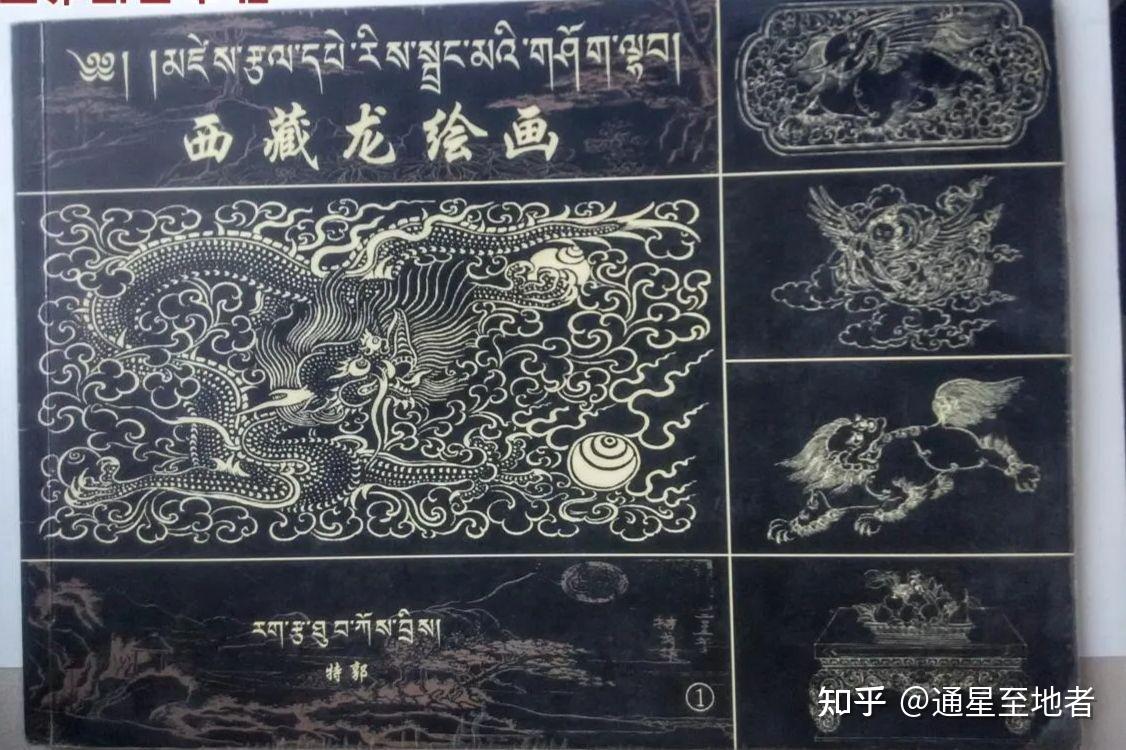 ༄༅། །མཛེས་རྩལ་དཔེ་རིས་སྦྲང་མའི་གཤོག་ལྡབ།
西藏龙绘画
རག་རྩ་ཐུ་བ་ཀོས་བྲིས།
特郭
①
知乎 @通星至地者